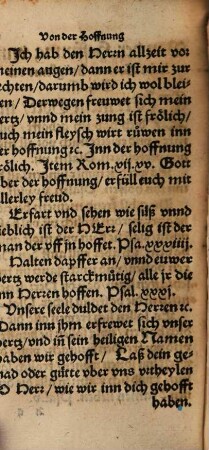 Von der Hoffnung
Ich hab den Herrn allzeit vor
meinen augen/dann er ist mir zur
rechten/darumb wird ich wol blei-
en/Derwegen freuwet sich mein
hertz/vnnd mein zung ist frölich/
auch mein fleysch wirt rüwen inn
der hoffnung ꝛc. Inn der hoffnung
frölich. Item Rom. xij. xv. Gott
aber der hoffnung/erfüll euch mit
allerley freud.
Erfart vnd sehen wie süß vnnd
lieblich ist der HErr/selig ist der
man der vff jn hoffet. Psa. xxxiiij.
Halten dapffer an/vnnd euwer
hertz werde starckmütig/alle jr die
inn Herren hoffen. Psal. xxxj.
Vnsere seele duldet den Herren ꝛc.
Dann inn jhm erfrewet sich vnser
hertz/vnd in sein heiligen Namen
haben wir gehofft/Laß dein ge-
nad oder gütte vber vns vrtheylen
O Herr/wie wir inn dich gehofft
haben.